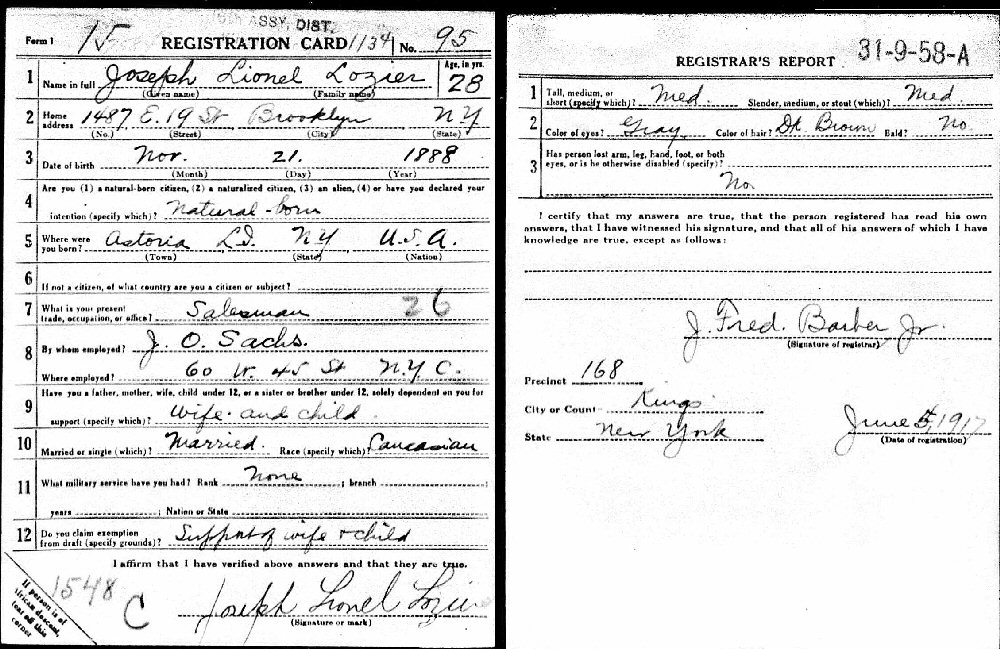 ASSY. DIST.
Form 1 15 REGISTRATION CARD 1134 No. 95
1 Name in full Joseph Lionel Lozier Age, in yrs. 28
(Given name) (Family name)
2 Home address 1487 E. 19 St Brooklyn NY
(No.) (Street) (City) (State)
3 Date of birth Nov. 21. 1888
(Month) (Day) (Year)
4 Are you (1) a natural-born citizen, (2) a naturalized citizen, (3) an alien, (4) or have you declared your
intention (specify which)? Natural-born
5 Where were you born? Astoria L.I. NY U.S.A.
(Town) (State) (Nation)
6 If not a citizen, of what country are you a citizen or subject?
7 What is your present trade, occupation, or office? Salesman 26
8 By whom employed? J. O. Sachs.
Where employed? 60 W. 45 St N.Y.C.
9 Have you a father, mother, wife, child under 12, or a sister or brother under 12, solely dependent on you for
support (specify which)? Wife and child
10 Married or single (which)? Married. Race (specify which)? Caucasian
11 What military service have you had? Rank None ; branch ;
years ; Nation or State
12 Do you claim exemption from draft (specify grounds)? Support of wife & child
I affirm that I have verified above answers and that they are true.
1548 C Joseph Lionel Lozier
(Signature or mark)
If person is of
African descent,
tear off this
corner
REGISTRAR'S REPORT 31-9-58-A
1 Tall, medium, or short (specify which)? Med. Slender, medium, or stout (which)? Med
2 Color of eyes? Gray Color of hair? Dk. Brown Bald? No
3 Has person lost arm, leg, hand, foot, or both
eyes, or is he otherwise disabled (specify)?
No.
I certify that my answers are true, that the person registered has read his own
answers, that I have witnessed his signature, and that all of his answers of which I have
knowledge are true, except as follows:
J. Fred. Barber Jr.
(Signature of registrar)
Precinct 168
City or County Kings
State New York June 5, 1917
(Date of registration)